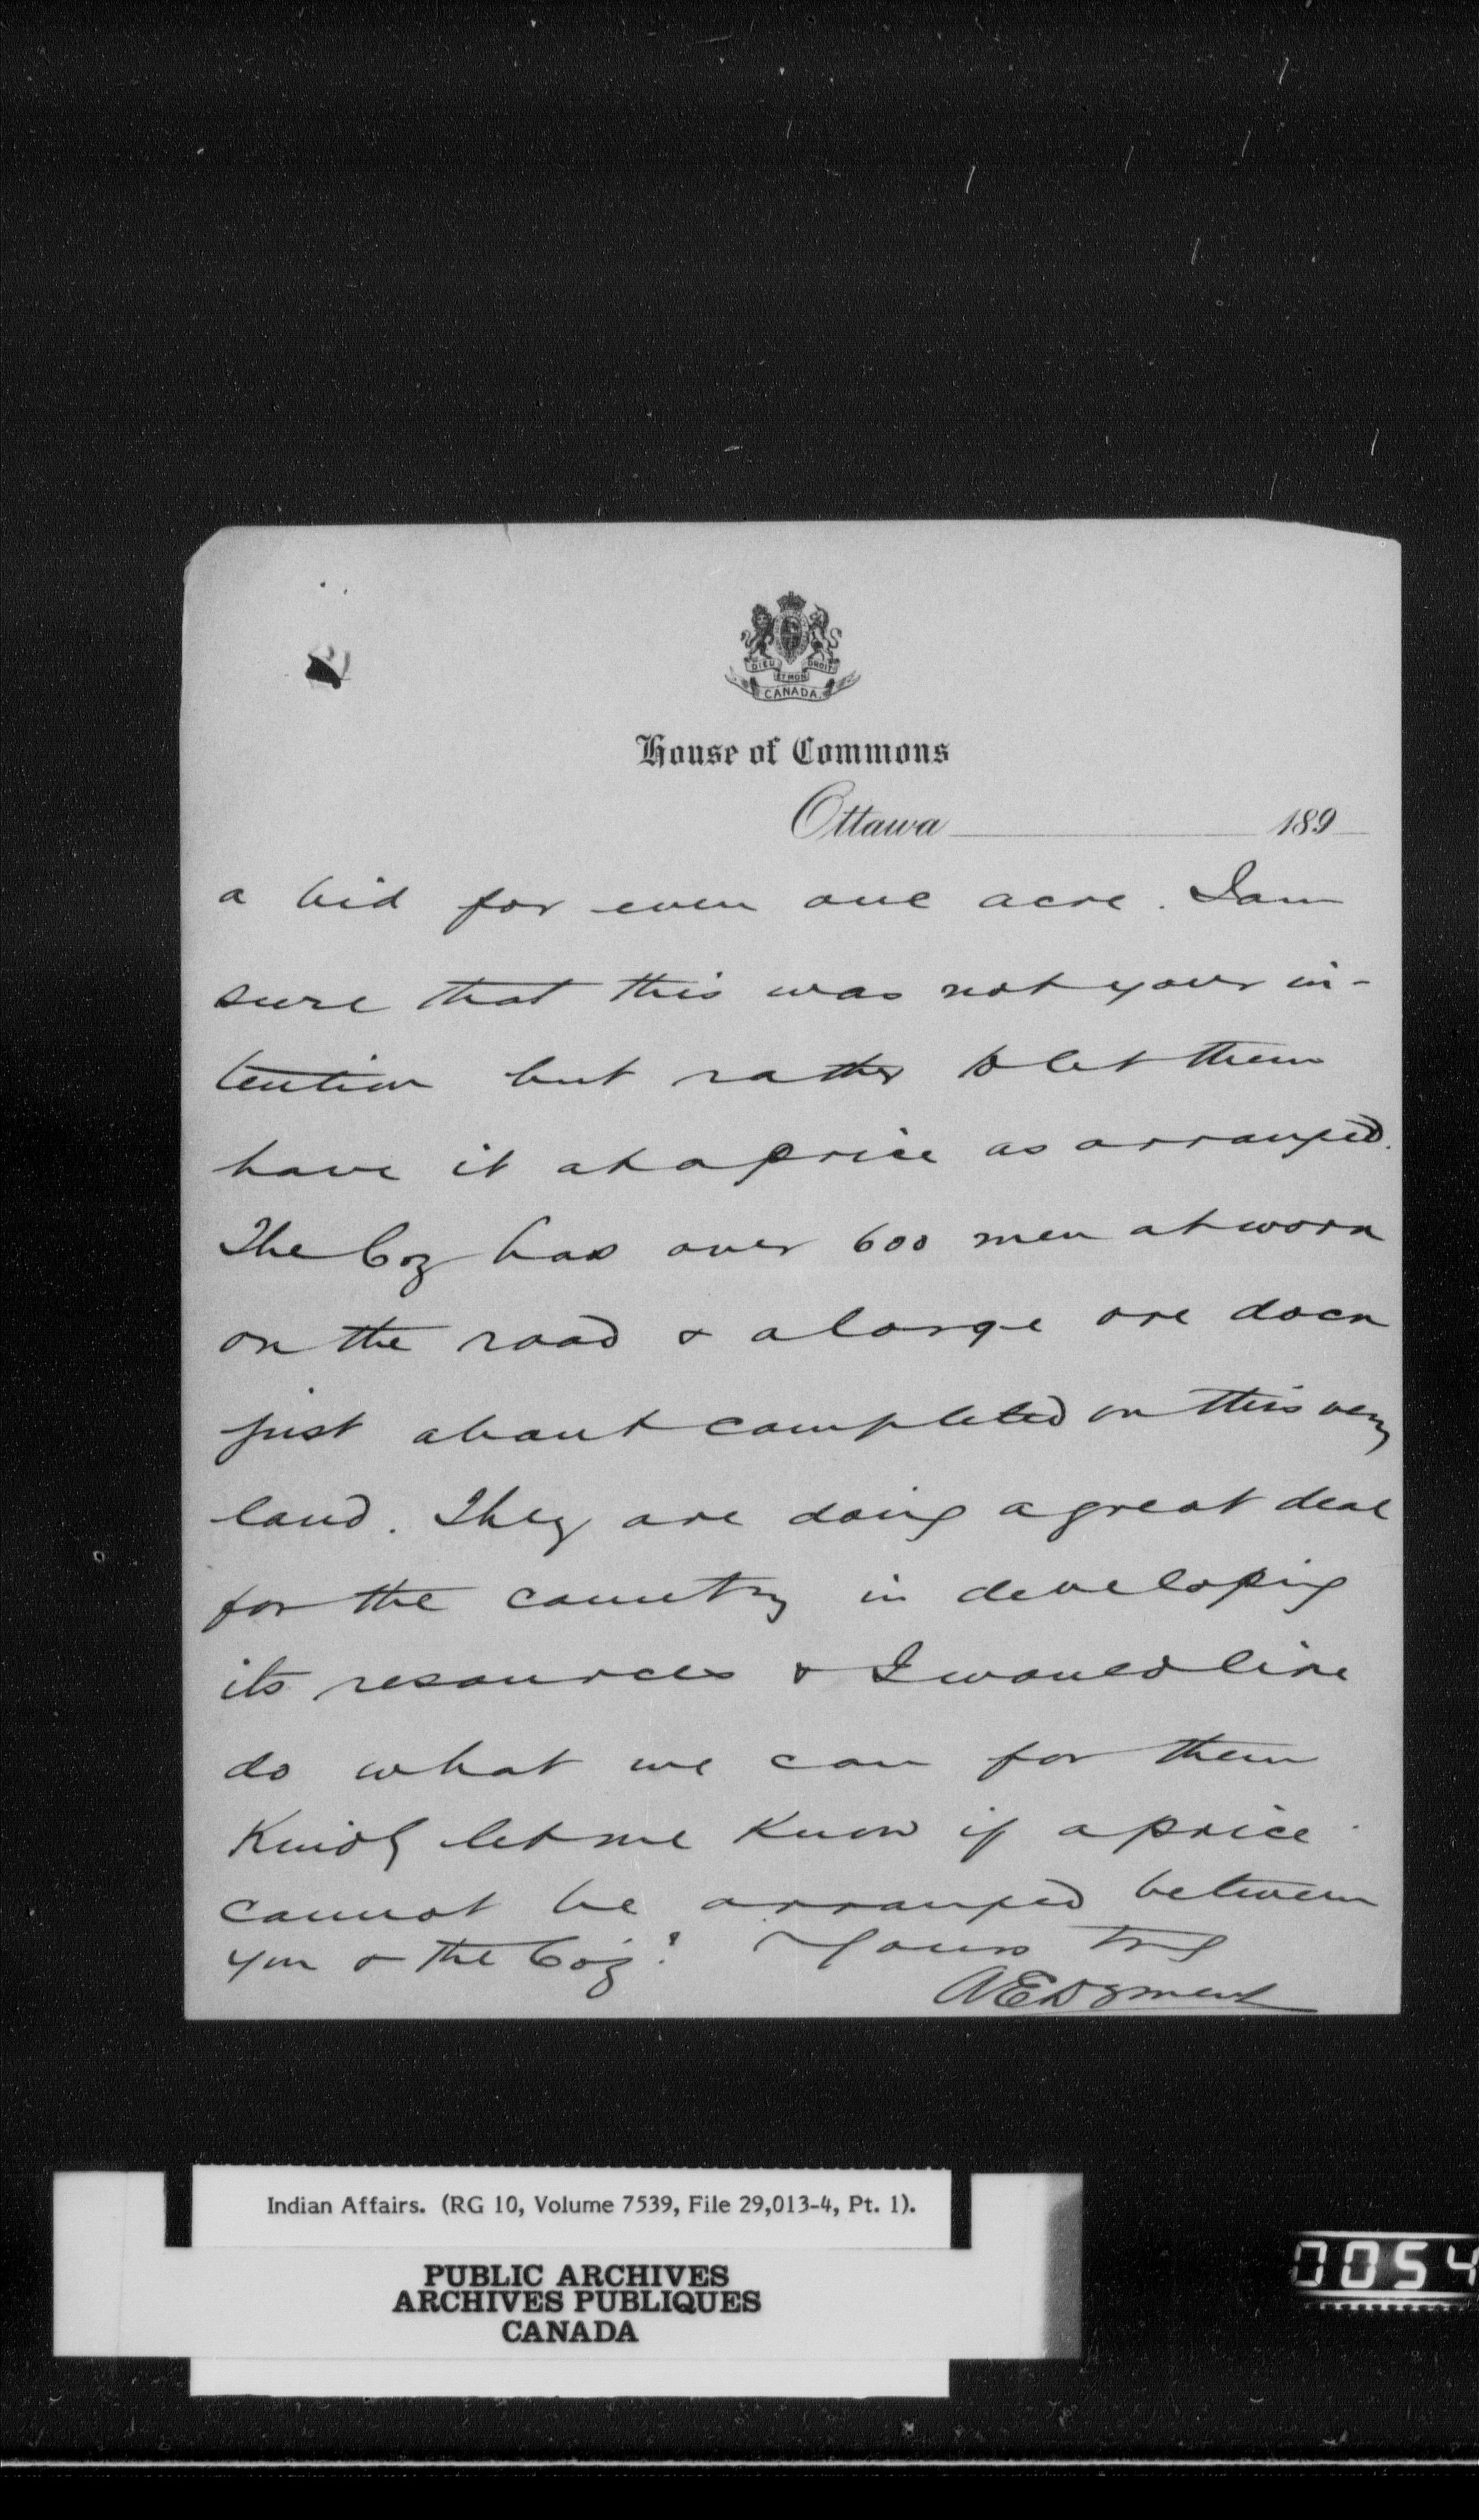 DIEU ET MON DROIT
CANADA
House of Commons
Ottawa 189
a bid for even one acre. I am
sure that this was not your in-
tention but rather to let them
have it at a price as arranged.
The Coy has over 600 men at work
on the road & a large ore dock
just about completed on this very
land. They are doing a great deal
for the country in developing
its resources & I would like
do what we can for them
Kindly let me know if a price
cannot be arranged between
you & the Coy? Yours try
AEDyment
Indian Affairs. (RG 10, Volume 7539, File 29,013-4, Pt. 1).
PUBLIC ARCHIVES
ARCHIVES PUBLIQUES
CANADA
0054